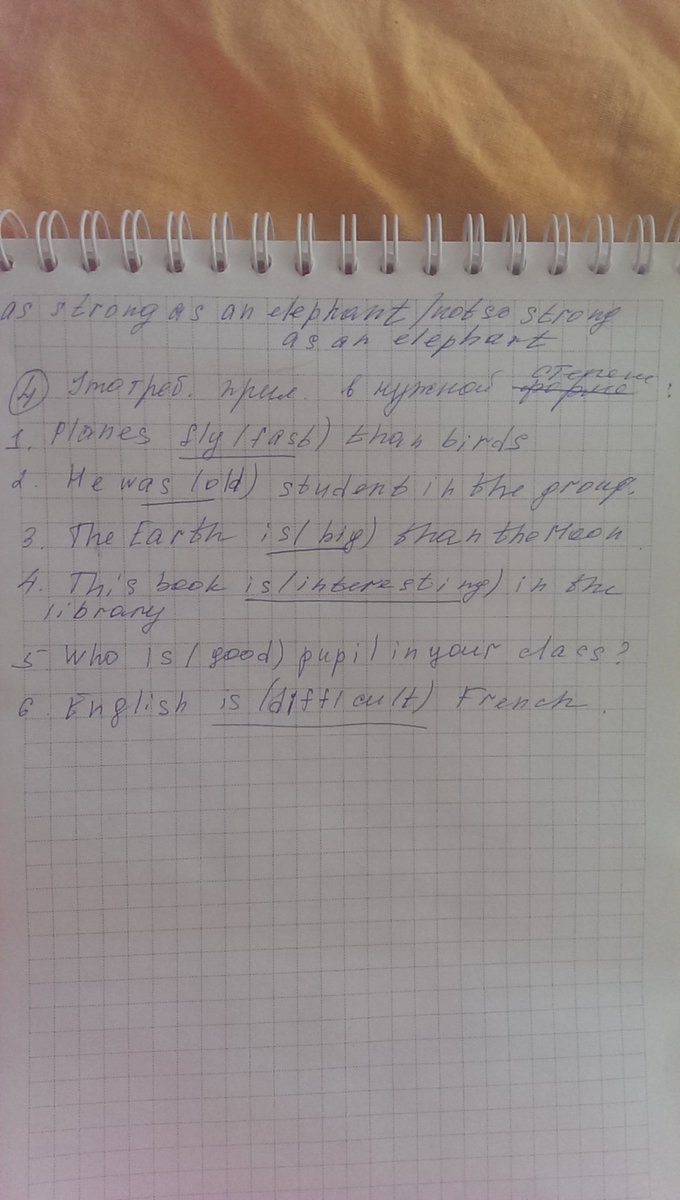 as strong as an elephant / not so strong
as an elephant
④ Употреб. прил. в нужной форме степени:
1. Planes fly (fast) than birds
2. He was (old) student in the group.
3. The Earth is (big) than the Moon
4. This book is (interesting) in the
library
5 Who is (good) pupil in your class?
6. English is (difficult) French.